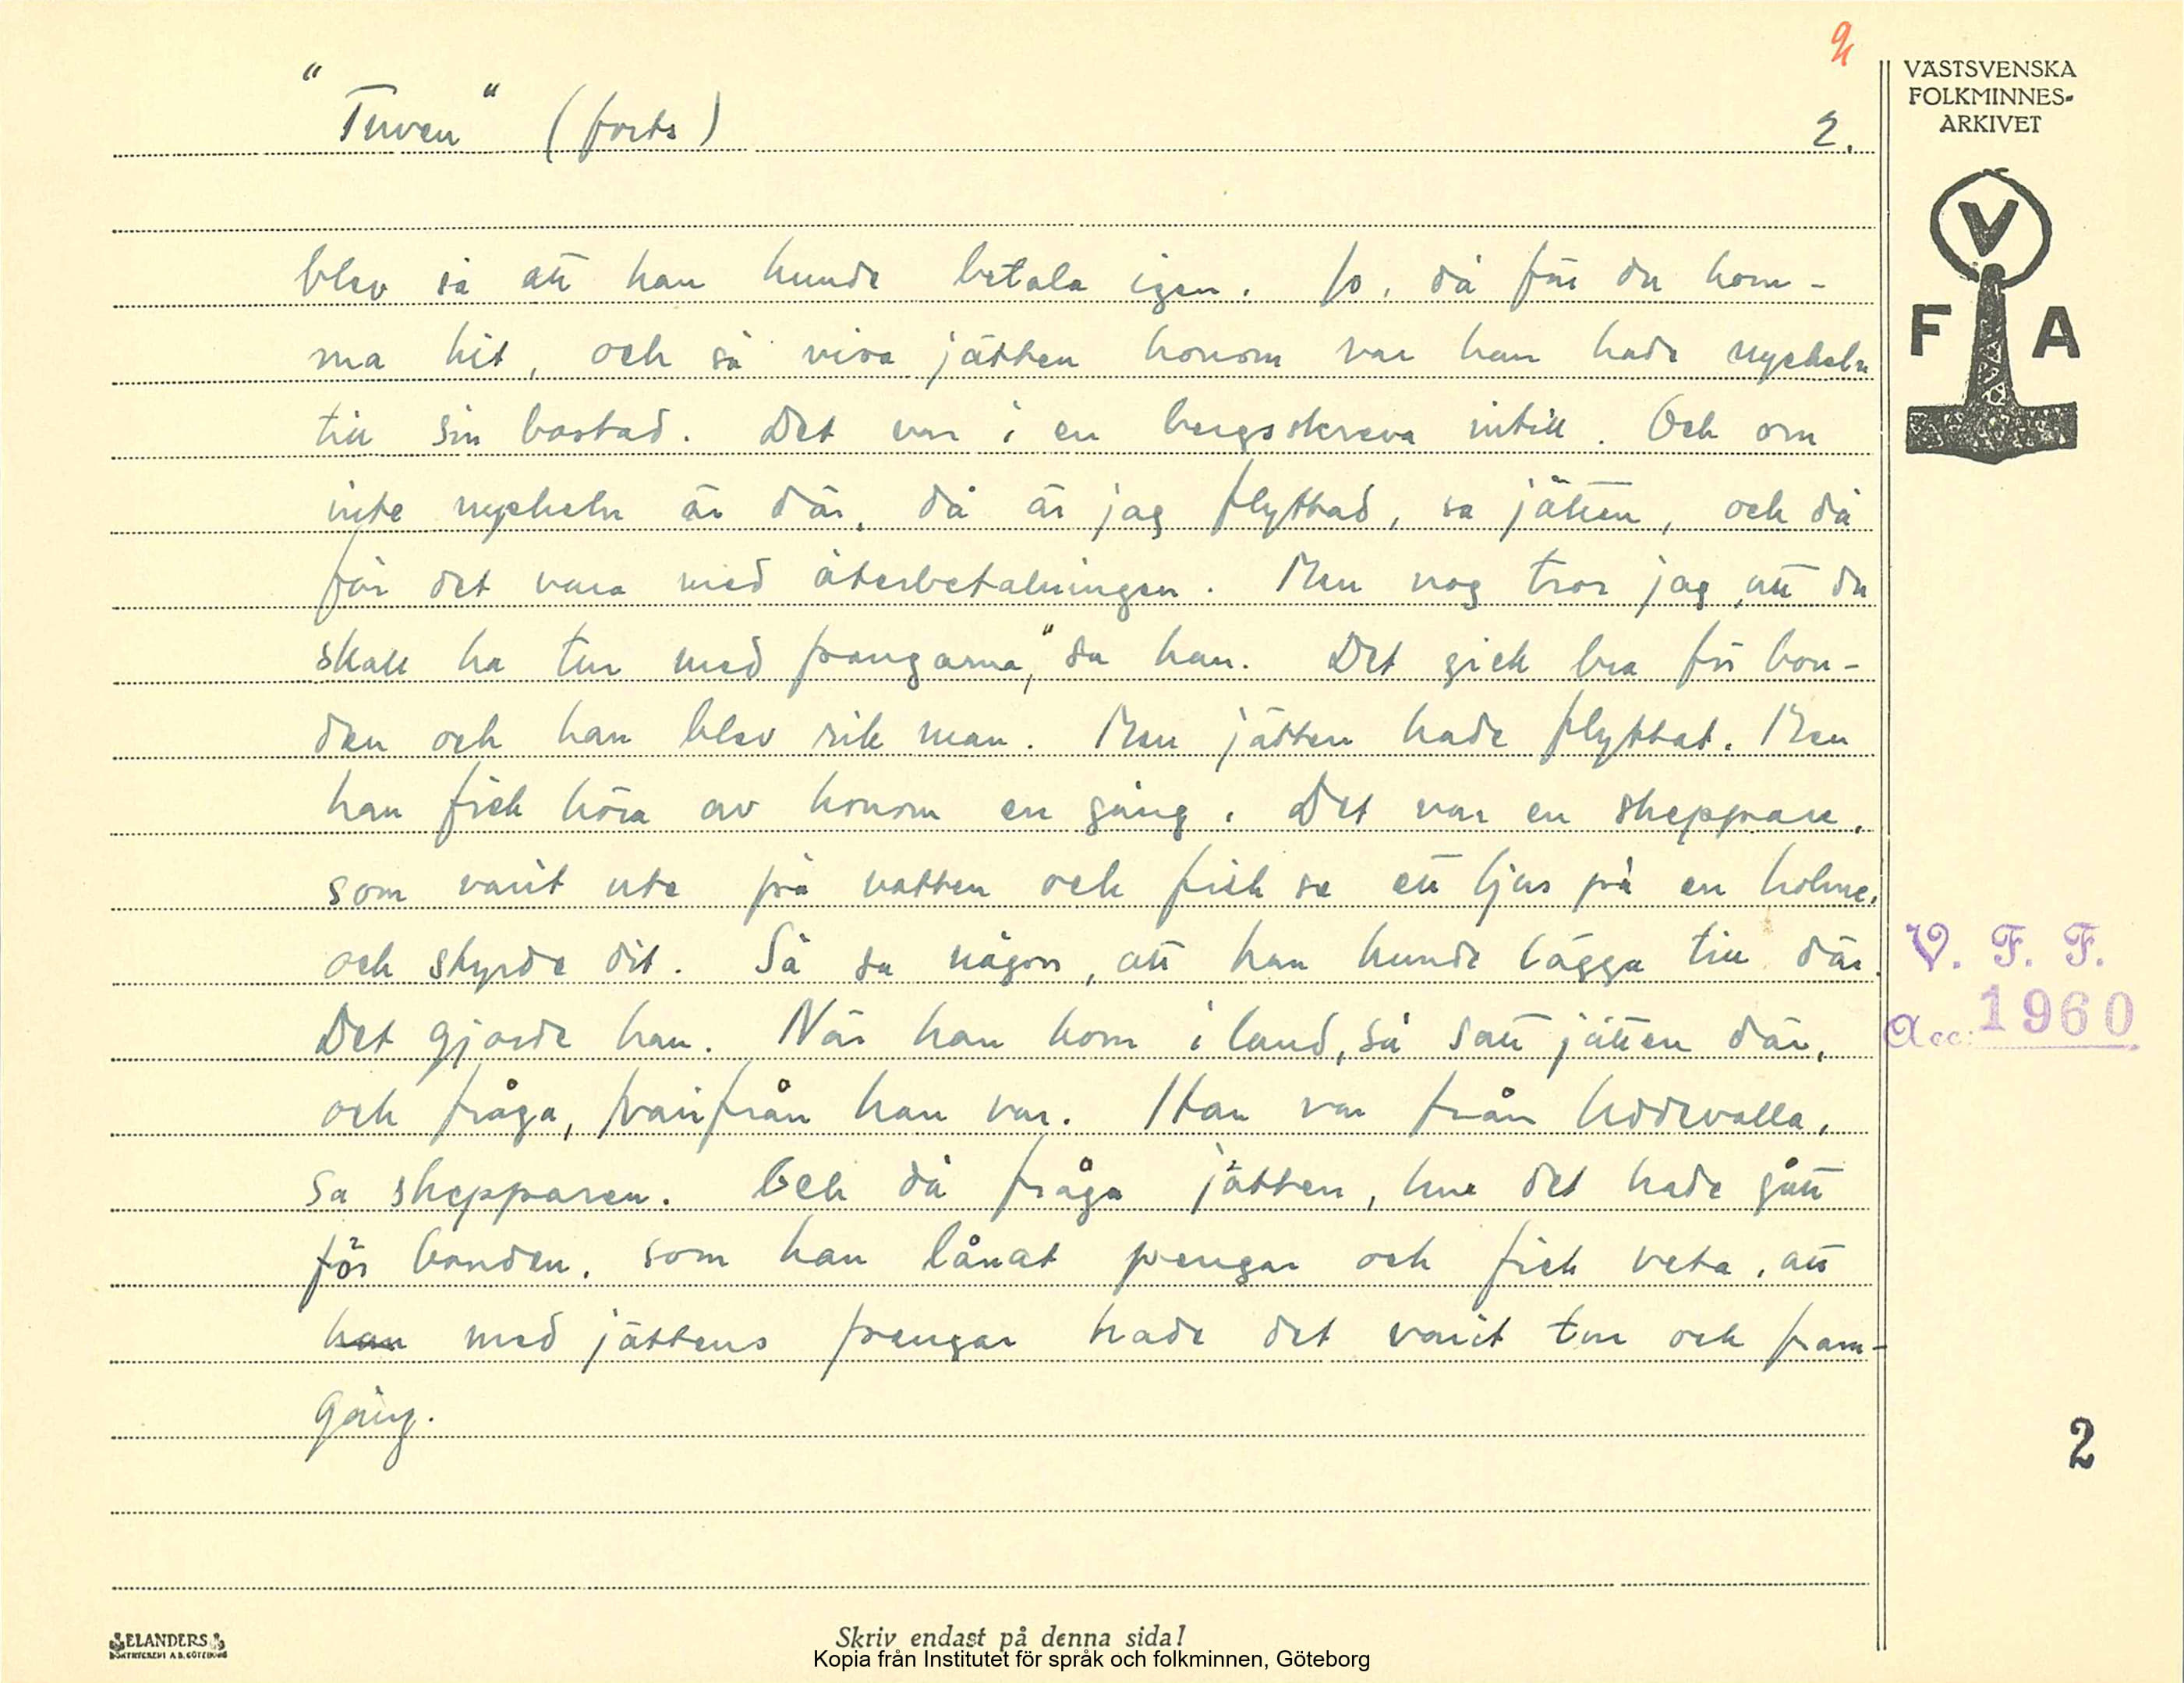 9
VÄSTSVENSKA
FOLKMINNES-
ARKIVET
V
F A
"Tuven" (forts) 2.
blev så att han kunde betala igen. Jo, då får du kom-
ma hit, och så visa jätten honom var han hade nyckeln
till sin bostad. Det var i en bergsskreva intill. Och om
inte nyckeln är där, då är jag flyttad, sa jätten, och då
får det vara med återbetalningen. Men nog tror jag, att du
skall ha tur med pengarna," sa han. Det gick bra för bon-
den och han blev rik man. Men jätten hade flyttat. Men
han fick höra av honom en gång. Det var en skeppare,
som varit ute på vatten och fick se ett ljus på en holme,
och styrde dit. Så sa någon, att han kunde lägga till där.
Det gjorde han. När han kom i land, så satt jätten där,
och fråga, varifrån han var. Han var från Uddevalla,
sa skepparen. Och då fråga jätten, hur det hade gått
för bonden, som han lånat pengar och fick veta, att
han med jättens pengar hade det varit tur och fram-
gång.
V. F. F.
Acc: 1960
2
ELANDERS
BOKTRYCKERI A.B. GÖTEBORG
Skriv endast på denna sida!
Kopia från Institutet för språk och folkminnen, Göteborg